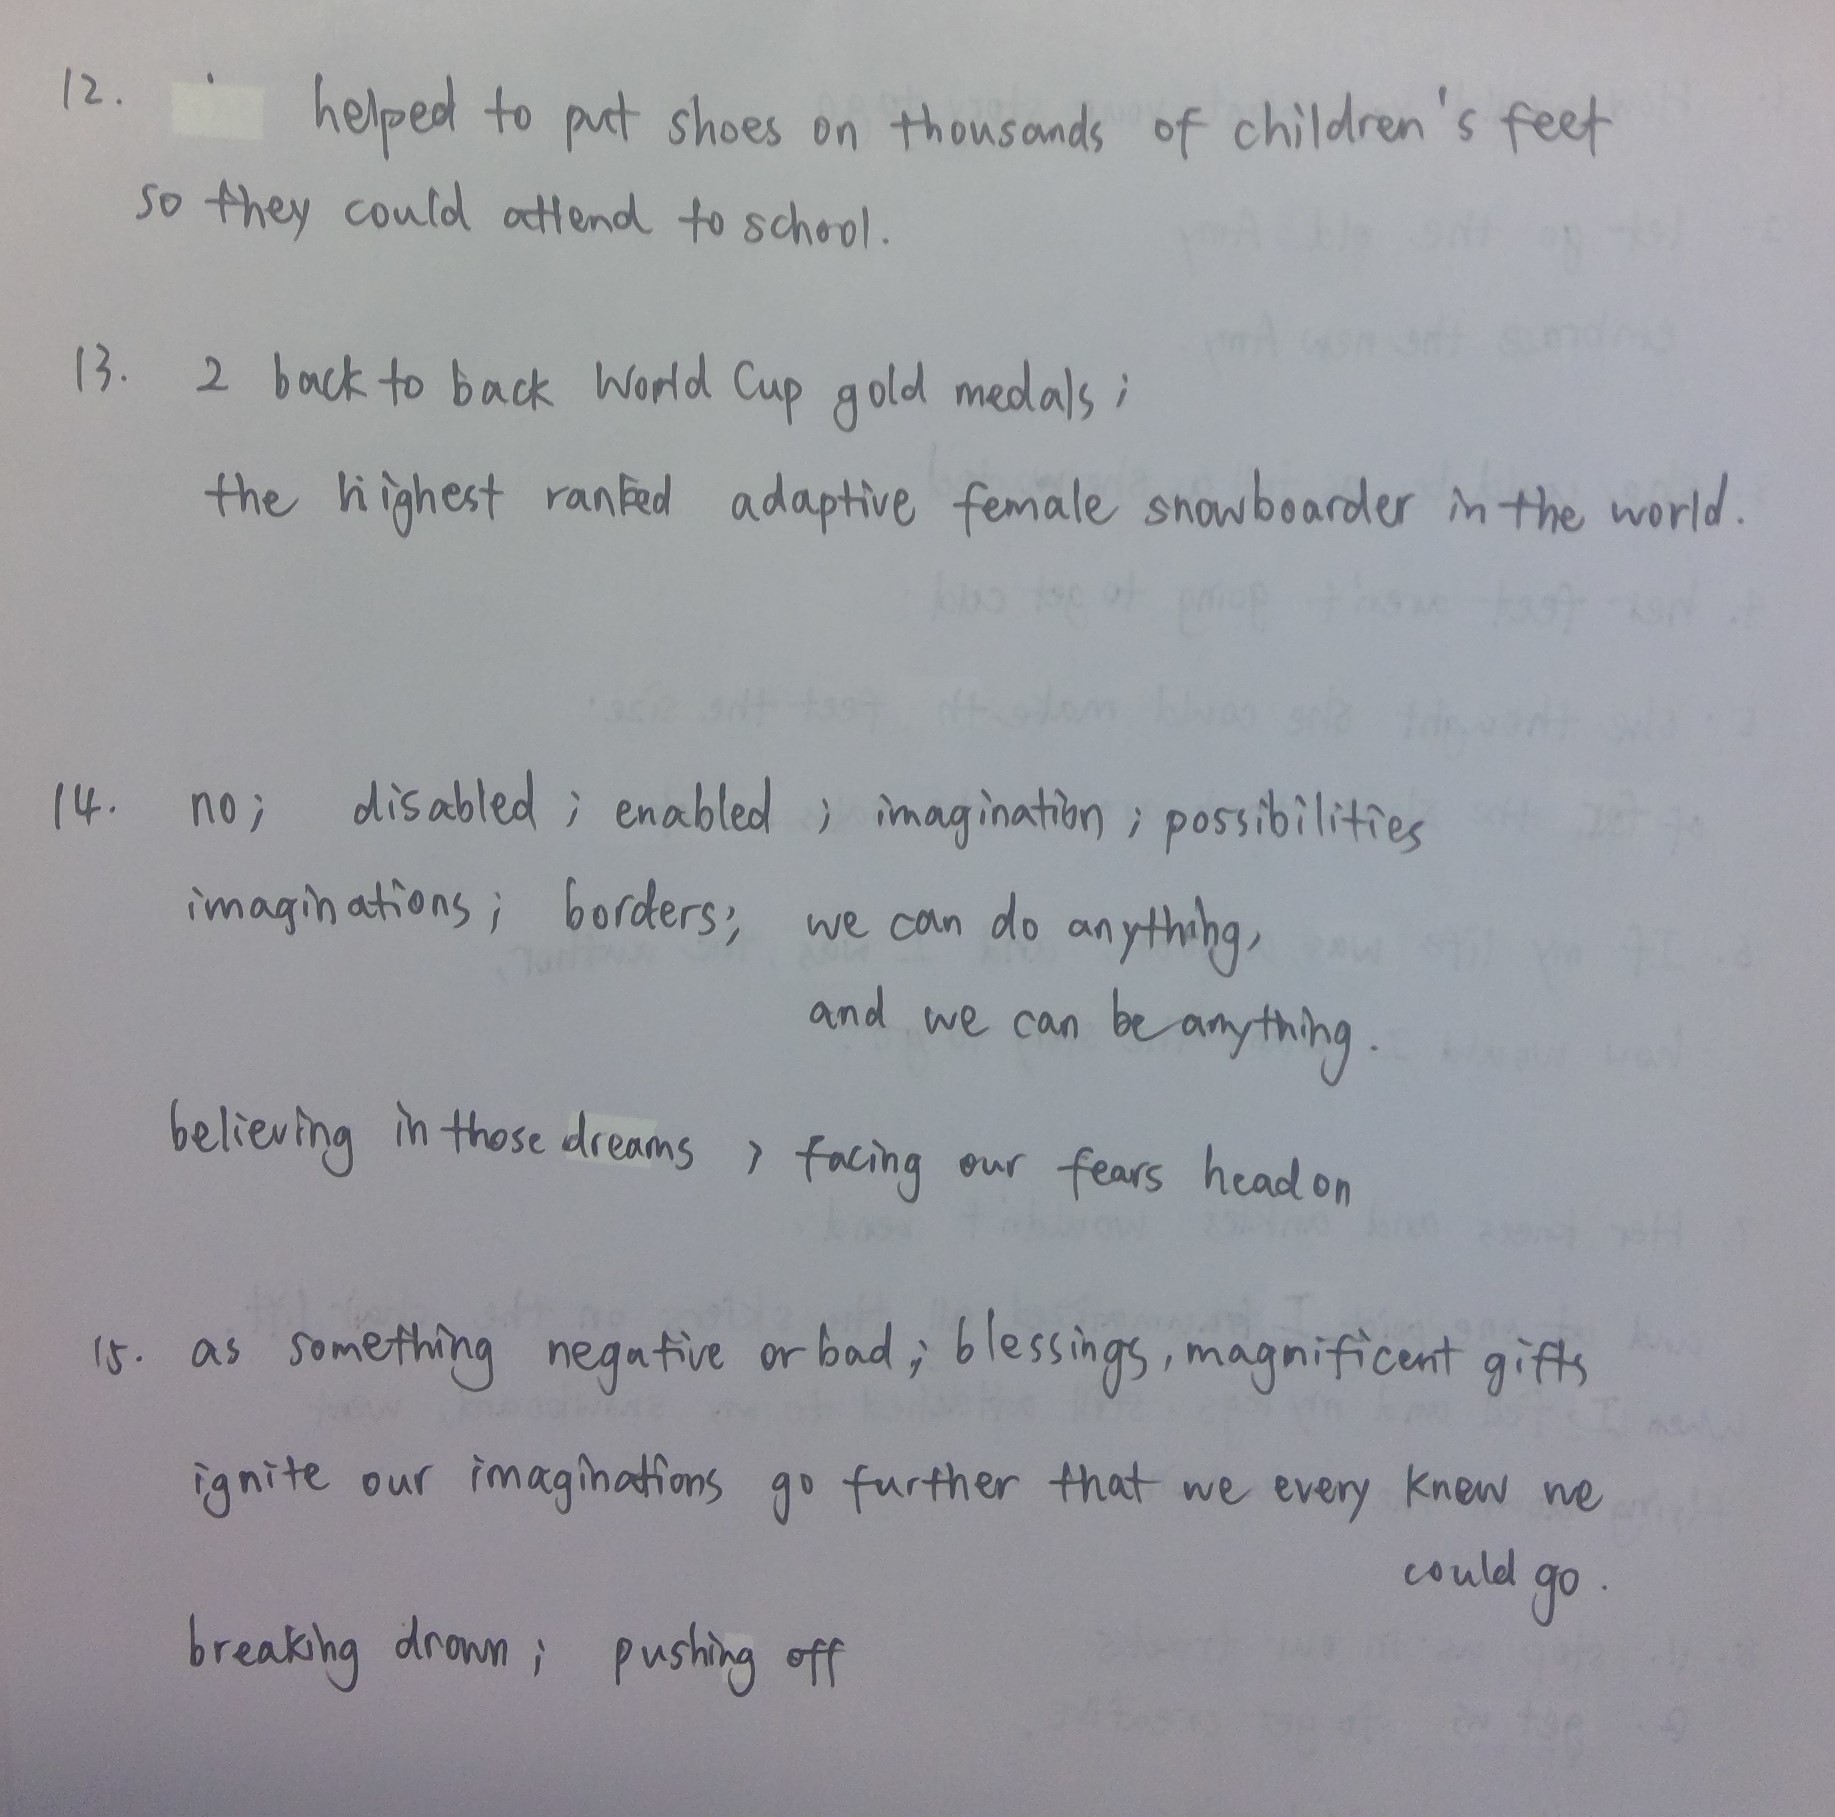 12. helped to put shoes on thousands of children's feet
so they could attend to school.
13. 2 back to back World Cup gold medals;
the highest ranked adaptive female snowboarder in the world.
14. no; disabled; enabled; imagination; possibilities
imaginations; borders; we can do anything,
and we can be anything.
believing in those dreams; facing our fears head on
15. as something negative or bad; blessings, magnificent gifts
ignite our imaginations go further that we every knew we
could go.
breaking drown; pushing off